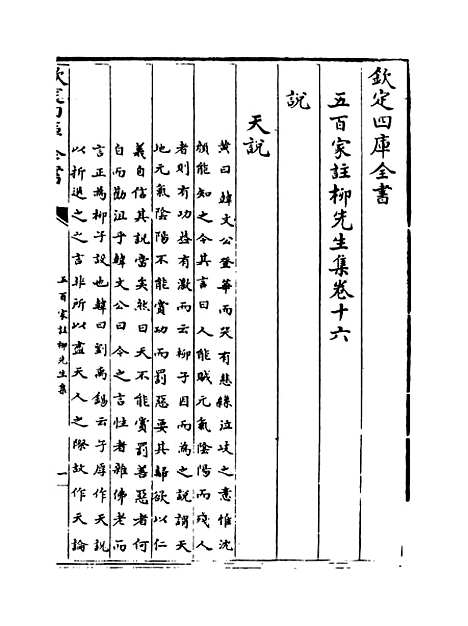 欽定四庫全書
五百家註柳先生集卷十六
說
天說
黄曰韓文公登華而哭有悲絲泣岐之意惟沈
顔能知之今其言曰人能賊元氣陰陽而殘人
者則有功益有激而云柳子因而為之説謂天
地元氣陰陽不能賞功而罰惡要其歸欲以仁
義自信其説當矣然曰天不能賞罰善惡者何
自而勸沮乎韓文公曰今之言性者雜佛老而
言正為柳子設也韓曰劉禹錫云子厚作天説
以折退之之言非所以盡天人之際故作天論
欽定四庫全書
五百家註柳先生集
一